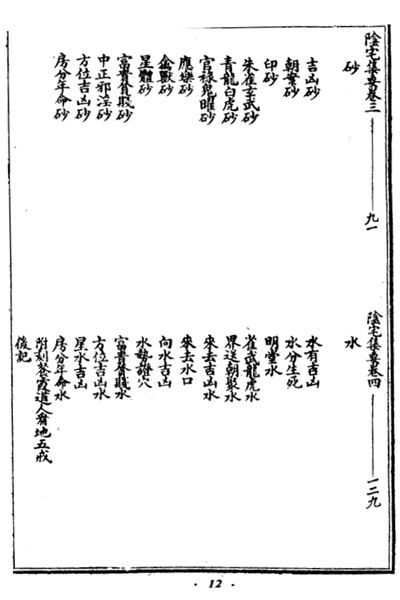 陰宅集要卷三 九一
砂
吉凶砂
朝案砂
印砂
朱雀玄武砂
青龍白虎砂
官祿鬼曜砂
應樂砂
禽獸砂
星體砂
富貴貧賤砂
中正邪淫砂
方位吉凶砂
房分年命砂
陰宅集要卷四 一二九
水
水有吉凶
水分生死
明堂水
雀武龍虎水
界送朝聚水
來去吉凶水
來去水口
向水吉凶
水勢證穴
富貴貧賤水
方位吉凶水
星水吉凶
房分年命水
附刻餐霞道人看地五戒
後記
· 12 ·